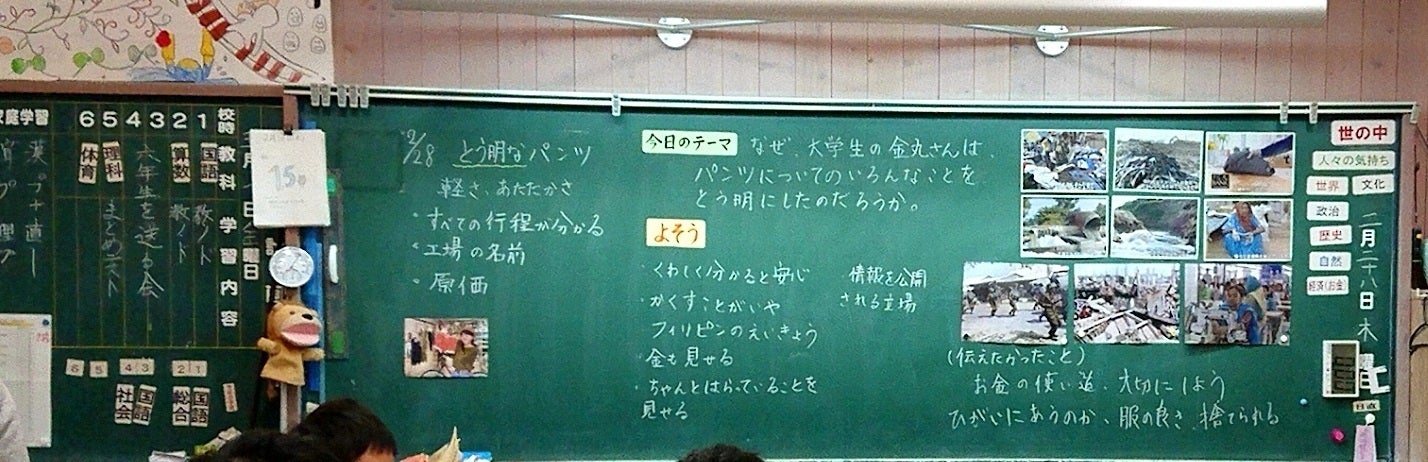 2/28 とう明なパンツ
軽さ、あたたかさ
・すべての行程が分かる
・工場の名前
・原価
今日のテーマ
なぜ、大学生の金丸さんは
パンツについてのいろんなことを
とう明にしたのだろうか。
よそう
くわしく分かると安心
・かくすことがいや
フィリピンのえいきょう
・金も見せる
・ちゃんとはらっていることを
見せる
情報を公開
される立場
(伝えたかったこと)
お金の使い道、大切にしよう
ひがいにあうのか、服の良さ、捨てられる
世の中
人々の気持ち
世界 文化
政治
歴史
自然
経済(お金)
二月二十八日 木曜日
日直
校時 教科 学習内容
1 国語
2 算数
3
4
六年生を送る会
5 理科 まとめテスト
6 体育
家庭学習
15
1 2 3 4 5 6
国語 総合 国語 社会